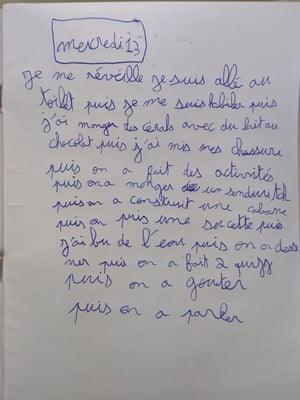 mercredi 13
Je me réveille je suis allé au
toilet puis je me suis habiler puis
j'ai monger des cérals avec du lait au
chocolat puis j'ai mis mes chassure
puis on a fait des activités
puis on a monger un sonduritch
puis on a construit une cabane
puis on puis une sorcette puis
j'ai bu de l'eau puis on a dess
ner puis on a fait 2 quizz
puis on a gouter
puis on a parler